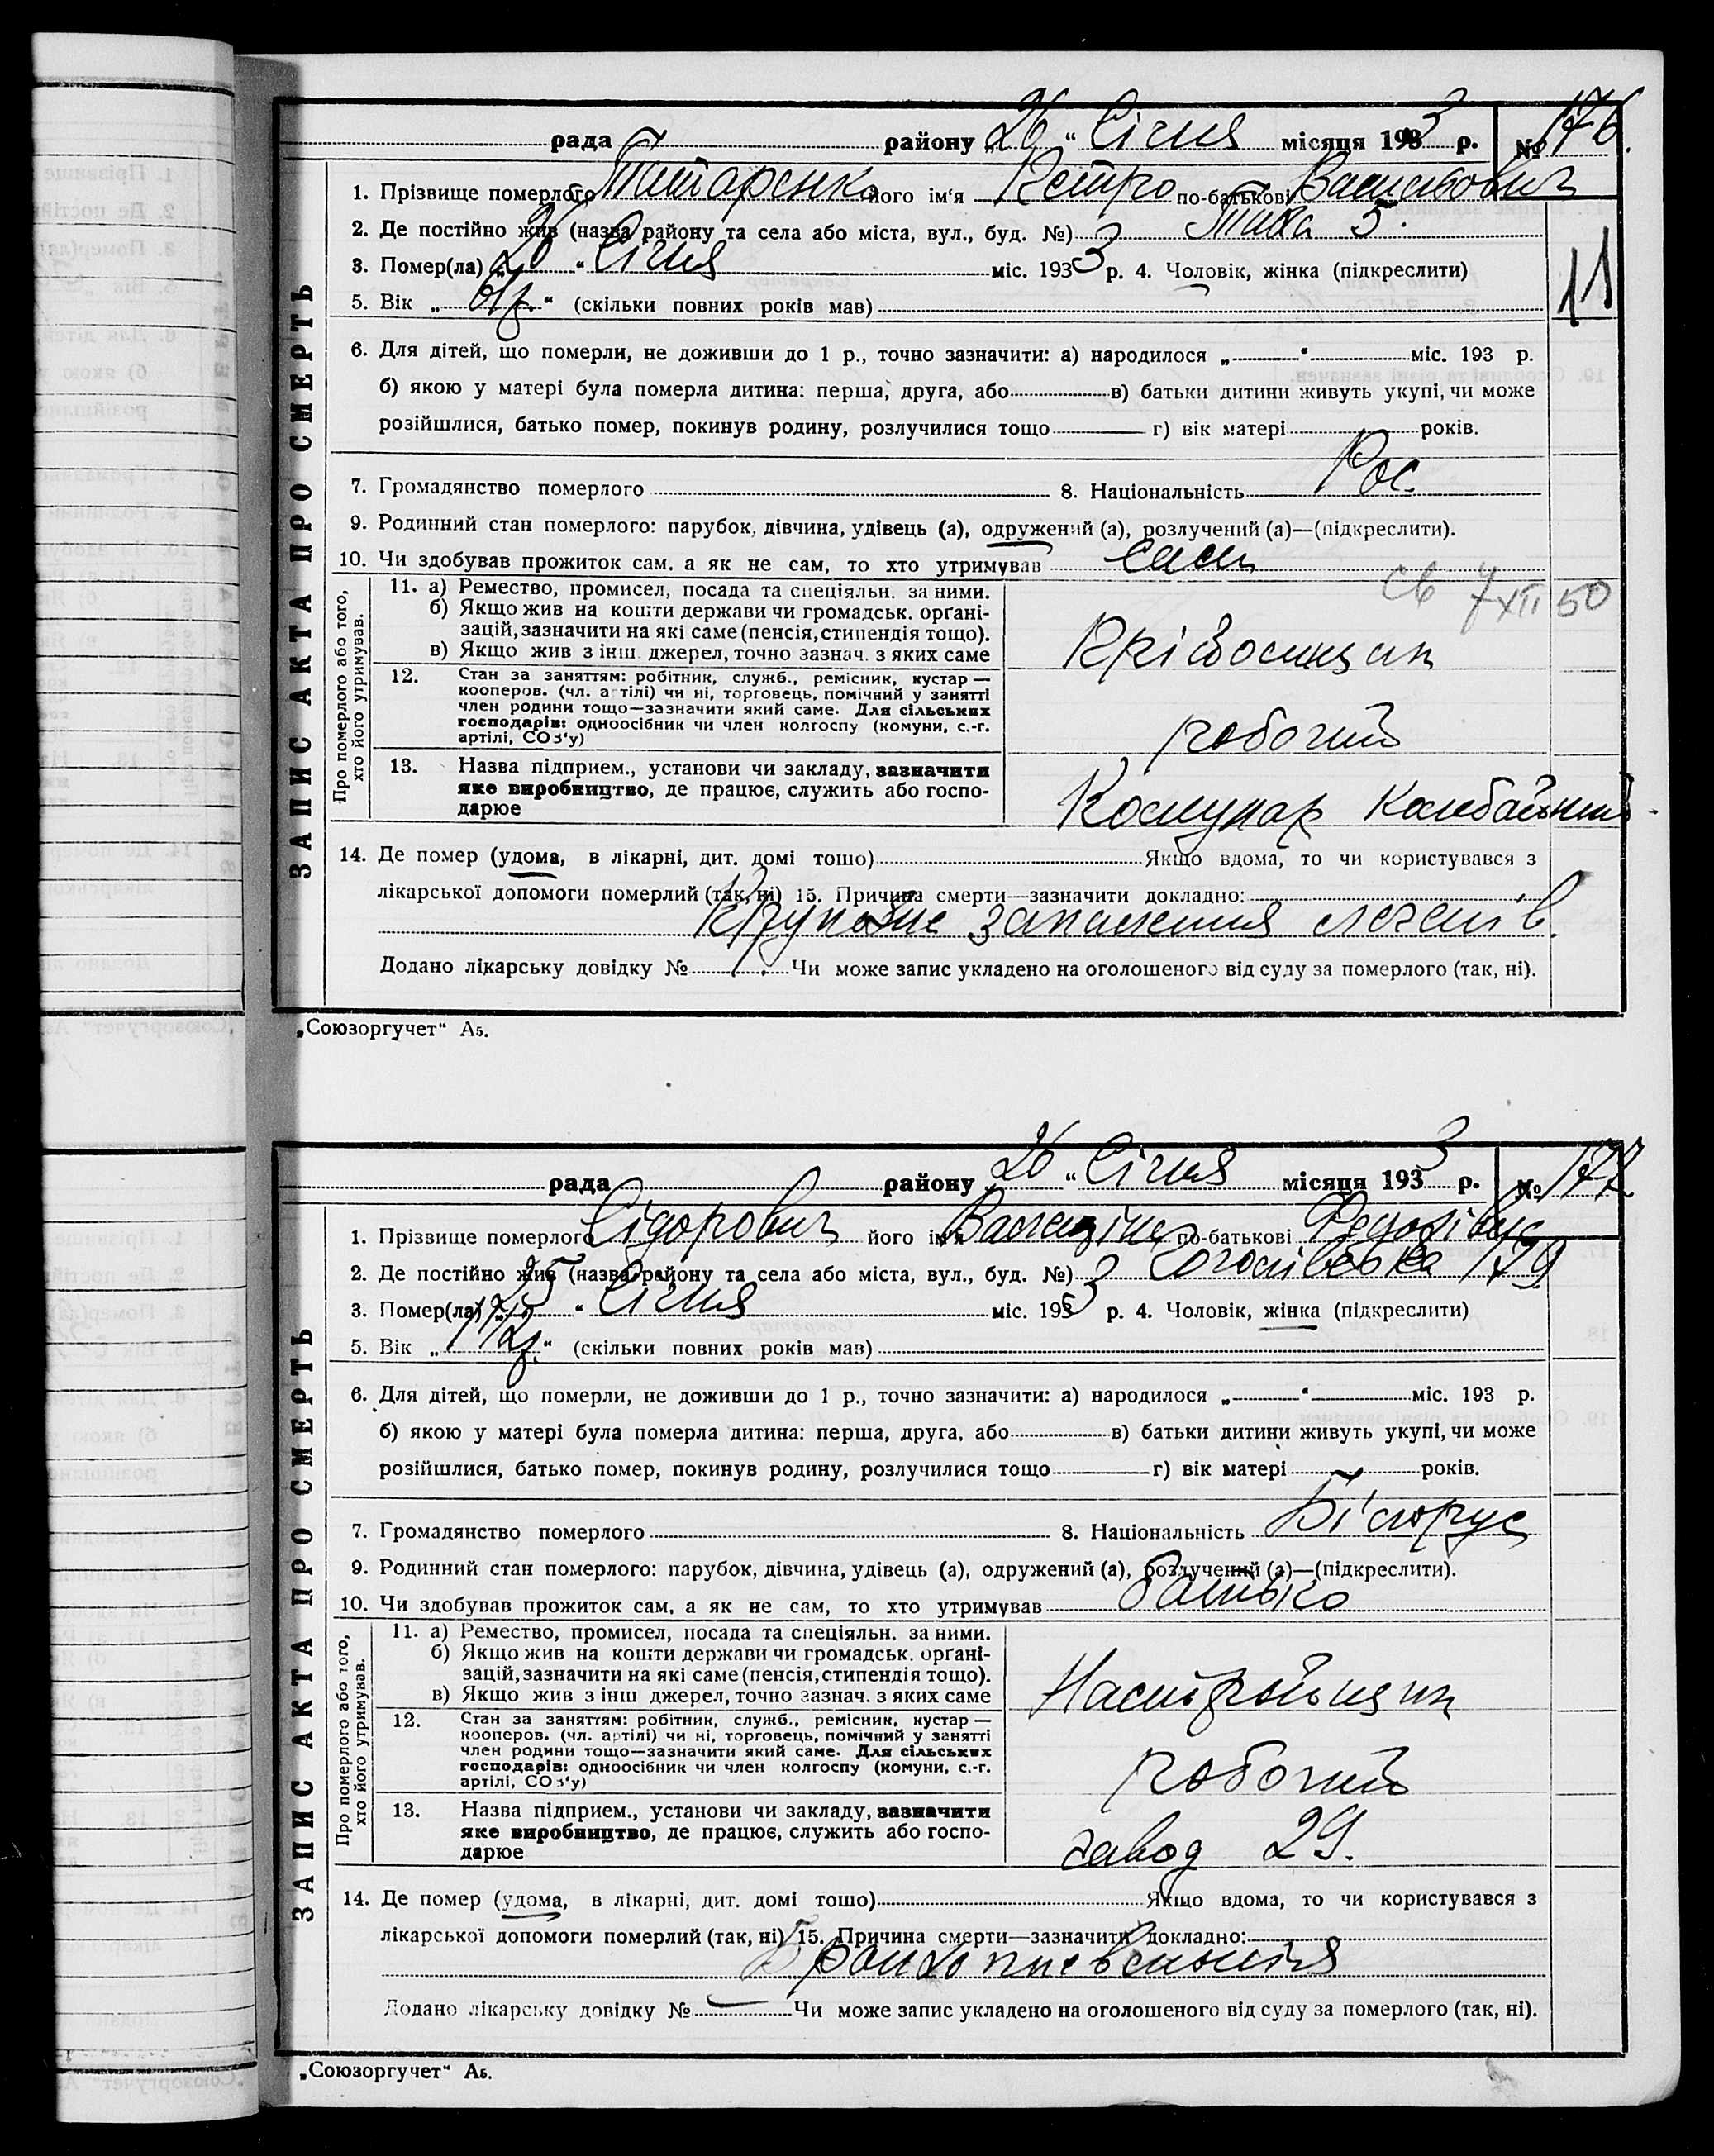 рада району „26“ Січня місяця 1933 р. № 176.
1. Прізвище померлого Татаренко його ім'я Петро по-батькові Васильович
2. Де постійно жив (назва району та села або міста, вул., буд. №) 5.
3. Помер(ла) „26“ Січня міс. 1933 р. 4. Чоловік, жінка (підкреслити)
11
5. Вік „ “ (скільки повних років мав)
6. Для дітей, що померли, не доживши до 1 р., точно зазначити: а) народилося „ “ міс. 193 р.
б) якою у матері була померла дитина: перша, друга, або в) батьки дитини живуть укупі, чи може
розійшлися, батько помер, покинув родину, розлучилися тощо г) вік матері років.
7. Громадянство померлого 8. Національність Рос.
9. Родинний стан померлого: парубок, дівчина, удівець (а), одружений (а), розлучений (а)—(підкреслити).
10. Чи здобував прожиток сам, а як не сам, то хто утримував сам
св 7 XII 50
ЗАПИС АКТА ПРО СМЕРТЬ
Про померлого або того, хто його утримував.
11. а) Ремество, промисел, посада та спеціяльн. за ними.
б) Якщо жив на кошти держави чи громадськ. орґані-
зацій, зазначити на які саме (пенсія, стипендія тощо).
в) Якщо жив з інш. джерел, точно зазнач. з яких саме
12. Стан за заняттям: робітник, служб., ремісник, кустар—
кооперов. (чл. артілі) чи ні, торговець, помічний у занятті
член родини тощо—зазначити який саме. Для сільських
господарів: одноосібник чи член колгоспу (комуни, с.-г.
артілі, СОЗ'у)
робочий
13. Назва підприєм., установи чи закладу, зазначити
яке виробництво, де працює, служить або госпо-
дарює
Комунар Комбайний
14. Де помер (удома, в лікарні, дит. домі тошо) Якщо вдома, то чи користувався з
лікарської допомоги померлий (так, ні) 15. Причина смерти—зазначити докладно:
Крупозне запалення легенів.
Додано лікарську довідку № Чи може запис укладено на оголошеного від суду за померлого (так, ні).
„Союзоргучет“ А5.
рада району „26“ Січня місяця 1933 р. № 177.
1. Прізвище померлого Сідорович його ім'я Валентіна по-батькові Федорівна
2. Де постійно жив (назва району та села або міста, вул., буд. №) Гоголівська 179
3. Помер(ла) „25“ Січня міс. 1933 р. 4. Чоловік, жінка (підкреслити)
5. Вік „1 1/2 р.“ (скільки повних років мав)
6. Для дітей, що померли, не доживши до 1 р., точно зазначити: а) народилося „ “ міс. 193 р.
б) якою у матері була померла дитина: перша, друга, або в) батьки дитини живуть укупі, чи може
розійшлися, батько помер, покинув родину, розлучилися тощо г) вік матері років.
7. Громадянство померлого 8. Національність Білорус
9. Родинний стан померлого: парубок, дівчина, удівець (а), одружений (а), розлучений (а)—(підкреслити).
10. Чи здобував прожиток сам, а як не сам, то хто утримував батько
ЗАПИС АКТА ПРО СМЕРТЬ
Про померлого або того, хто його утримував.
11. а) Ремество, промисел, посада та спеціяльн. за ними.
б) Якщо жив на кошти держави чи громадськ. орґані-
зацій, зазначити на які саме (пенсія, стипендія тощо).
в) Якщо жив з інш джерел, точно зазнач. з яких саме
Настройщик
12. Стан за заняттям: робітник, служб., ремісник, кустар—
кооперов. (чл. артілі) чи ні, торговець, помічний у занятті
член родини тощо—зазначити який саме. Для сільських
господарів: одноосібник чи член колгоспу (комуни, с.-г.
артілі, СОЗ'у)
робочий
13. Назва підприєм., установи чи закладу, зазначити
яке виробництво, де працює, служить або госпо-
дарює
завод 29.
14. Де помер (удома, в лікарні, дит. домі тошо) Якщо вдома, то чи користувався з
лікарської допомоги померлий (так, ні) 15. Причина смерти—зазначити докладно:
Бронхопневмонія
Додано лікарську довідку № Чи може запис укладено на оголошеного від суду за померлого (так, ні).
„Союзоргучет“ А5.